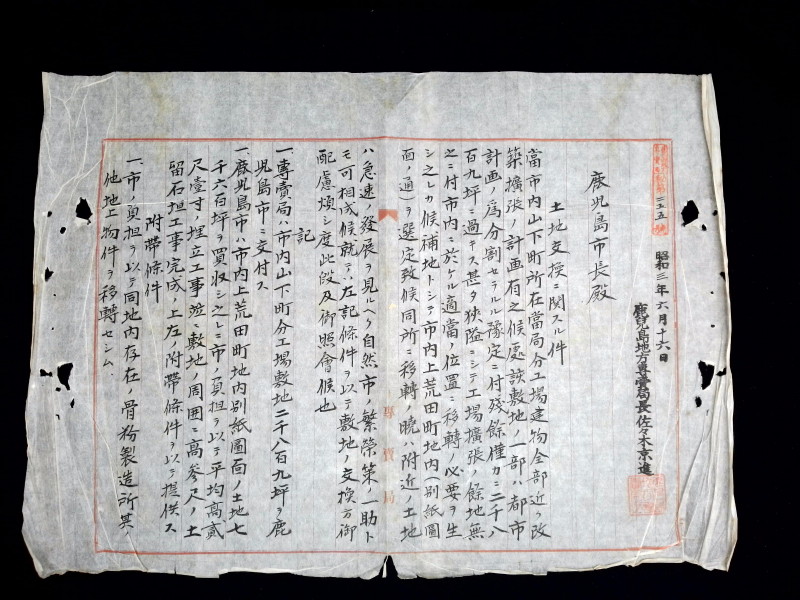 第二三五號
昭和三年六月十六日
鹿兒島地方專賣局長佐々木京進
鹿児島市長殿
土地交換ニ関スル件
當市内山下町所在當局分工場建物全部近ク改
築擴張ノ計画有之候處該敷地ノ一部ハ都市
計画ノ爲分割セラルル豫定ニ付残餘僅カニ二千八
百九坪ニ過キス甚タ狹隘ニシテ工場擴張ノ餘地無
之ニ付市内ニ於ケル適當ノ位置ニ移轉ノ必要ヲ生
シ之レカ候補地トシテ市内上荒田町地内(別紙圖
面ノ通)ヲ選定致候同所ニ移轉ノ曉ハ附近ノ土地
專賣局
ハ急速ノ發展ヲ見ルヘク自然市ノ繁榮策ノ一助ト
モ可相成候就テハ左記條件ヲ以テ敷地ノ交換方御
配慮煩シ度此段及御照會候也
記
一、專賣局ハ市内山下町分工場敷地二千八百九坪ヲ鹿
児島市ニ交付ス
一、鹿児島市ハ市内上荒田町地内別紙圖面ノ土地七
千六百坪ヲ買收シ之レニ市ノ負担ヲ以テ平均高貳
尺壹寸ノ埋立工事並ニ敷地ノ周囲ニ高參尺ノ土
留石垣工事完成ノ上左ノ附帶條件ヲ以テ提供ス
附帶條件
一、市ノ負担ヲ以テ同地内存在ノ骨粉製造所其ノ
他地上物件ヲ移轉セシム